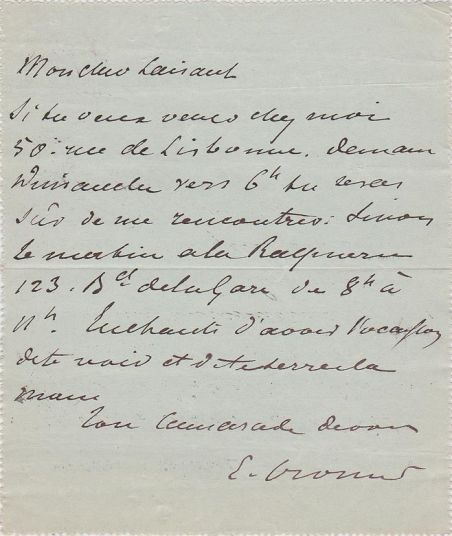 Mon cher Laisant
Si tu veux venir chez moi
50. rue de Lisbonne. demain
Dimanche vers 6h tu seras
sûr de me rencontrer: sinon
le matin à la
123. Bd de la Gare de 8h à
11h. Enchanté d'avoir l'occasion
de te voir et de te serrer la
main
Ton camarade dévoué
E.